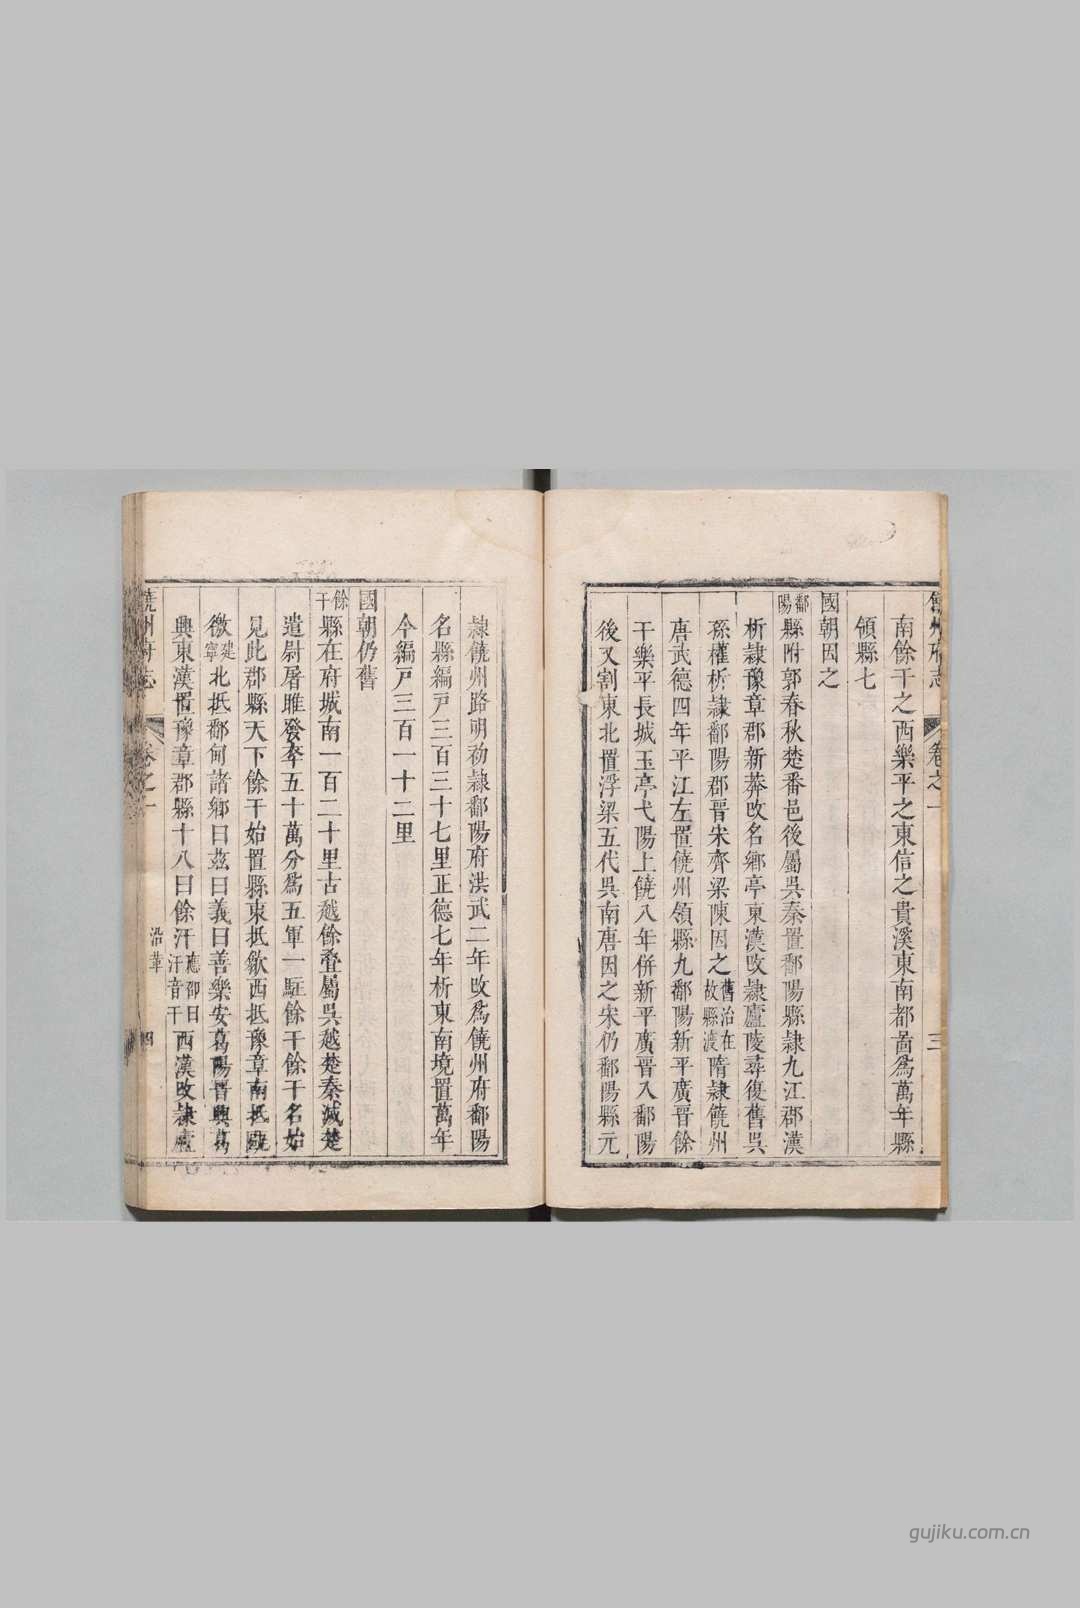 饒州府志
卷之一
三
南餘干之西樂平之東信之貴溪東南都啚爲萬年縣
領縣七
國朝因之
鄱陽縣附郭春秋楚番邑後屬吳秦置鄱陽縣隸九江郡漢
析隸豫章郡新莽改名鄉亭東漢改隸廬陵尋復舊吳
孫權析隸鄱陽郡晉宋齊梁陳因之舊治在故縣渡隋隸饒州
唐武德四年平江左置饒州領縣九鄱陽新平廣晉餘
干樂平長城玉亭弋陽上饒八年併新平廣晉入鄱陽
後又割東北置浮梁五代吳南唐因之宋仍鄱陽縣元
隷饒州路明初隸鄱陽府洪武二年改爲饒州府鄱陽
名縣編戸三百三十七里正德七年析東南境置萬年
今編戸三百一十二里
國朝仍舊
餘干縣在府城南一百二十里古越餘疊屬吳越楚秦滅楚
遣尉屠睢發卒五十萬分爲五軍一駐餘干餘干名始
見此郡縣天下餘干始置縣東抵歙西抵豫章南抵
徼建寧北抵鄱甸諸鄉曰兹曰義曰善樂安葛陽晉興葛
興東漢置豫章郡縣十八曰餘汗應卲曰汗音干西漢改隸廬
饒州府志
卷之一
沿革
四
gujiku.com.cn